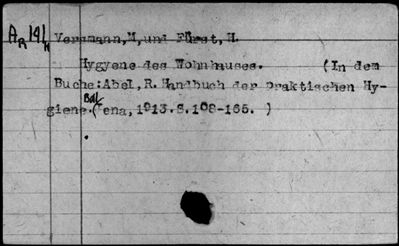 AR 141h Versmann,M,und Fürst,H.
Hygyene des Wohnhauses. (In dem
Buche:Abel,R.Handbuch der praktischen Hy-
giene.(ena, 1913.S.108-165. )